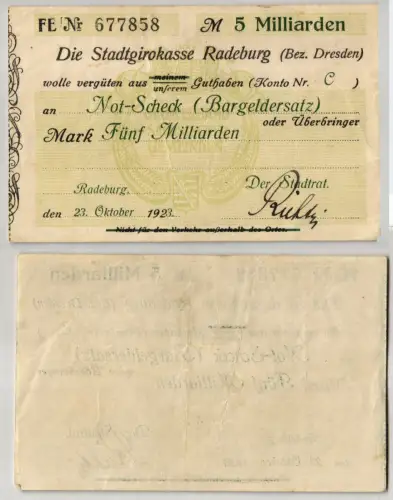 FE Nr 677858 M 5 Milliarden
Die Stadtgirokasse Radeburg (Bez. Dresden)
wolle vergüten aus meinem unserem Guthaben (Konto Nr. C )
an Not-Scheck (Bargeldersatz)
oder Überbringer
Mark Fünf Milliarden
Radeburg, Der Stadtrat.
den 23. Oktober 1923.
Nicht für den Verkehr außerhalb des Ortes.